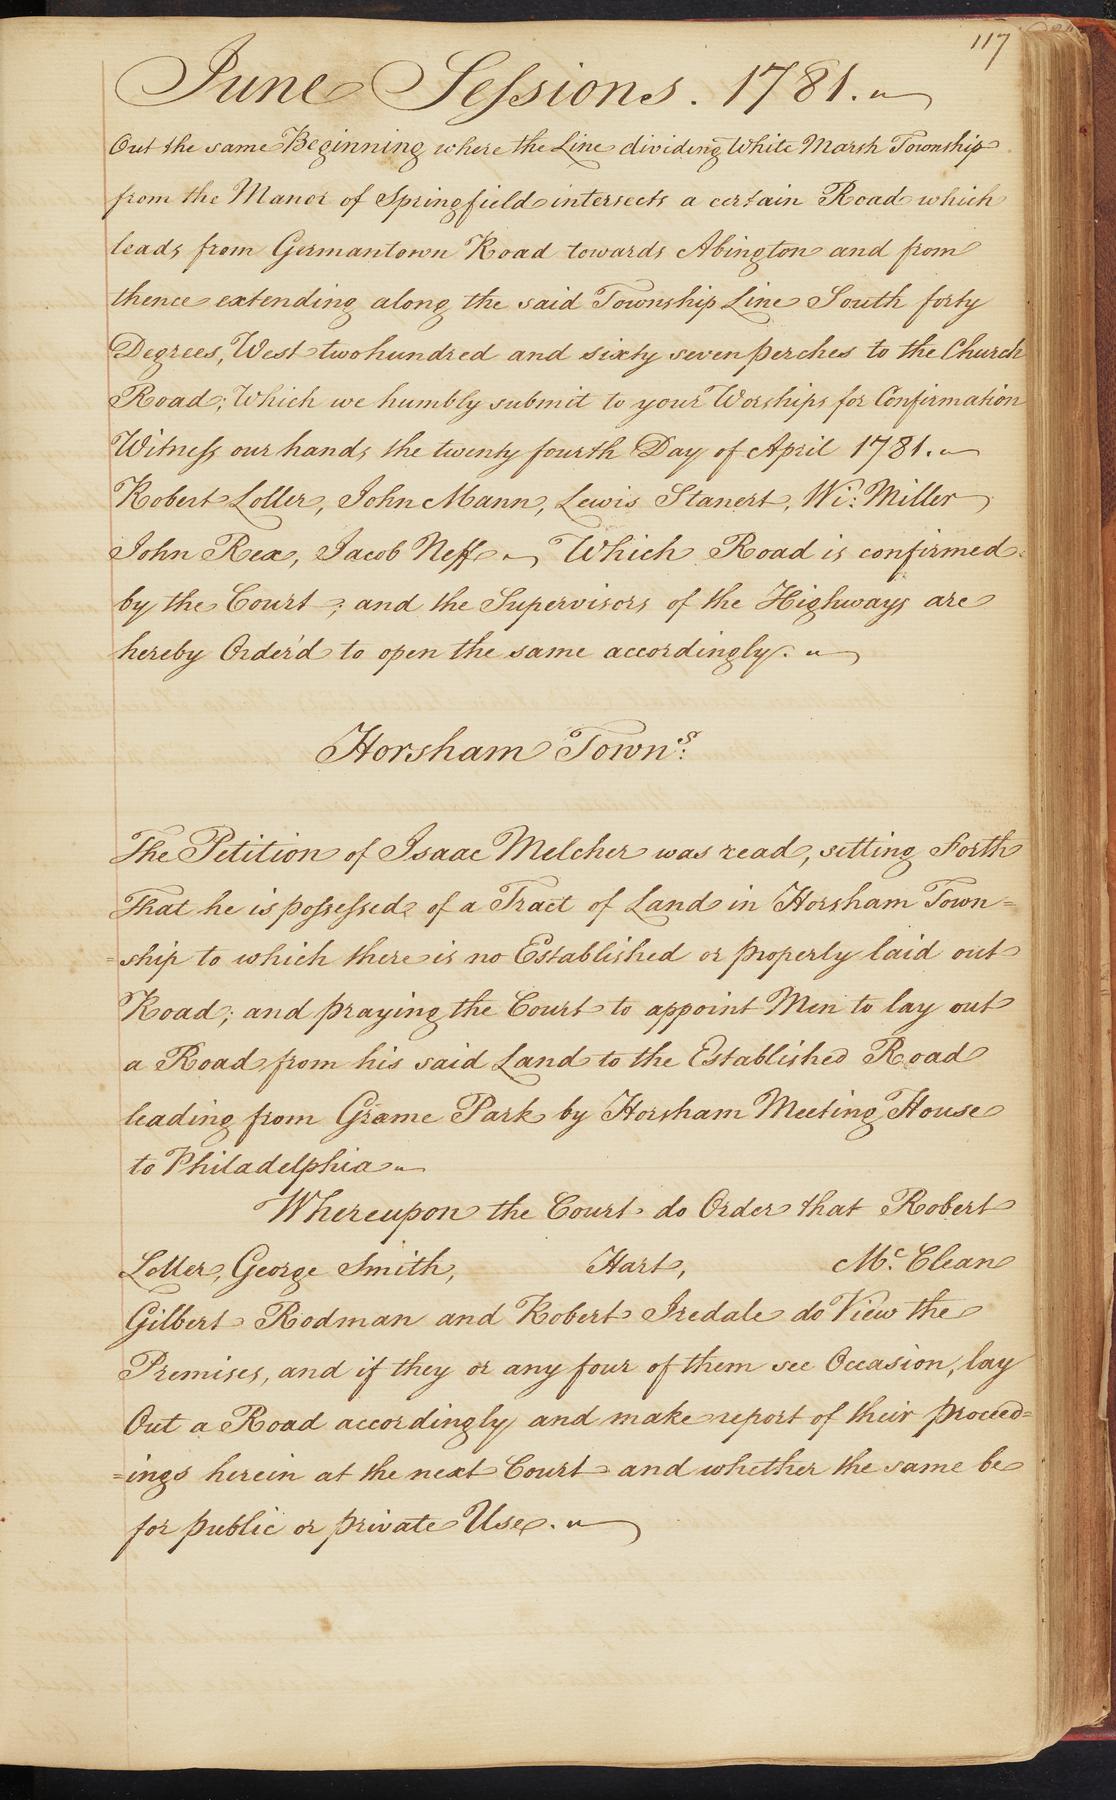 117
June Sessions. 1781.
Out the same Beginning where the Line dividing White Marsh Township
from the Manor of Springfield intersects a certain Road which
leads from Germantown Road towards Abington and from
thence extending along the said Township Line South forty
Degrees, West two hundred and sixty seven perches to the Church
Road; Which we humbly submit to your Worships for Confirmation
Witness our hands the twenty fourth Day of April 1781.
Robert Loller, John Mann, Lewis Stanert, Wi: Miller
John Rex, Jacob Neff Which Road is confirmed
by the Court; and the Supervisors of the Highways are
hereby Order'd to open the same accordingly.
Horsham Towns:
The Petition of Isaac Melcher was read, setting Forth
That he is possessed of a Tract of Land in Horsham Town=
=ship to which there is no Established or properly laid out
Road; and praying the Court to appoint Men to lay out
a Road from his said Land to the Established Road
leading from Grame Park by Horsham Meeting House
to Philadelphia
Whereupon the Court do Order that Robert
Loller, George Smith, Hart, Mc. Clean
Gilbert Rodman and Robert Iredale do View the
Premises, and if they or any four of them see Occasion, lay
Out a Road accordingly and make report of their proceed=
=ings herein at the next Court and whether the same be
for public or private Use.